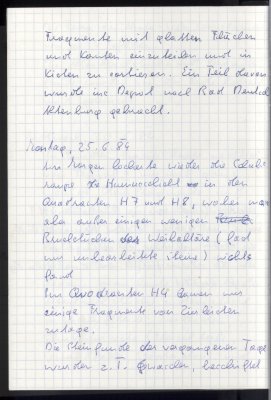 Fragmente mit glatten Flächen
und Kanten einzuteilen und in
Kisten zu sortieren. Ein Teil davon
wurde ins Depot nach Bad Deutsch
Altenburg gebracht.
Montag, 25.6.84
Am Morgen lockerte wieder die Schub-
raupe die Humusschicht in den
Quadranten H7 und H8, wobei man
aber außer einigen wenigen
Bruchstücken der Weihaltäre (fast
nur unbearbeitete Steine) nichts
fand
Im Quadranten H4 kamen nur
einige Fragmente von Einfachen
zutage.
Die Steinfunde der vergangenen Tage
wurden z.T. gewaschen, beschriftet